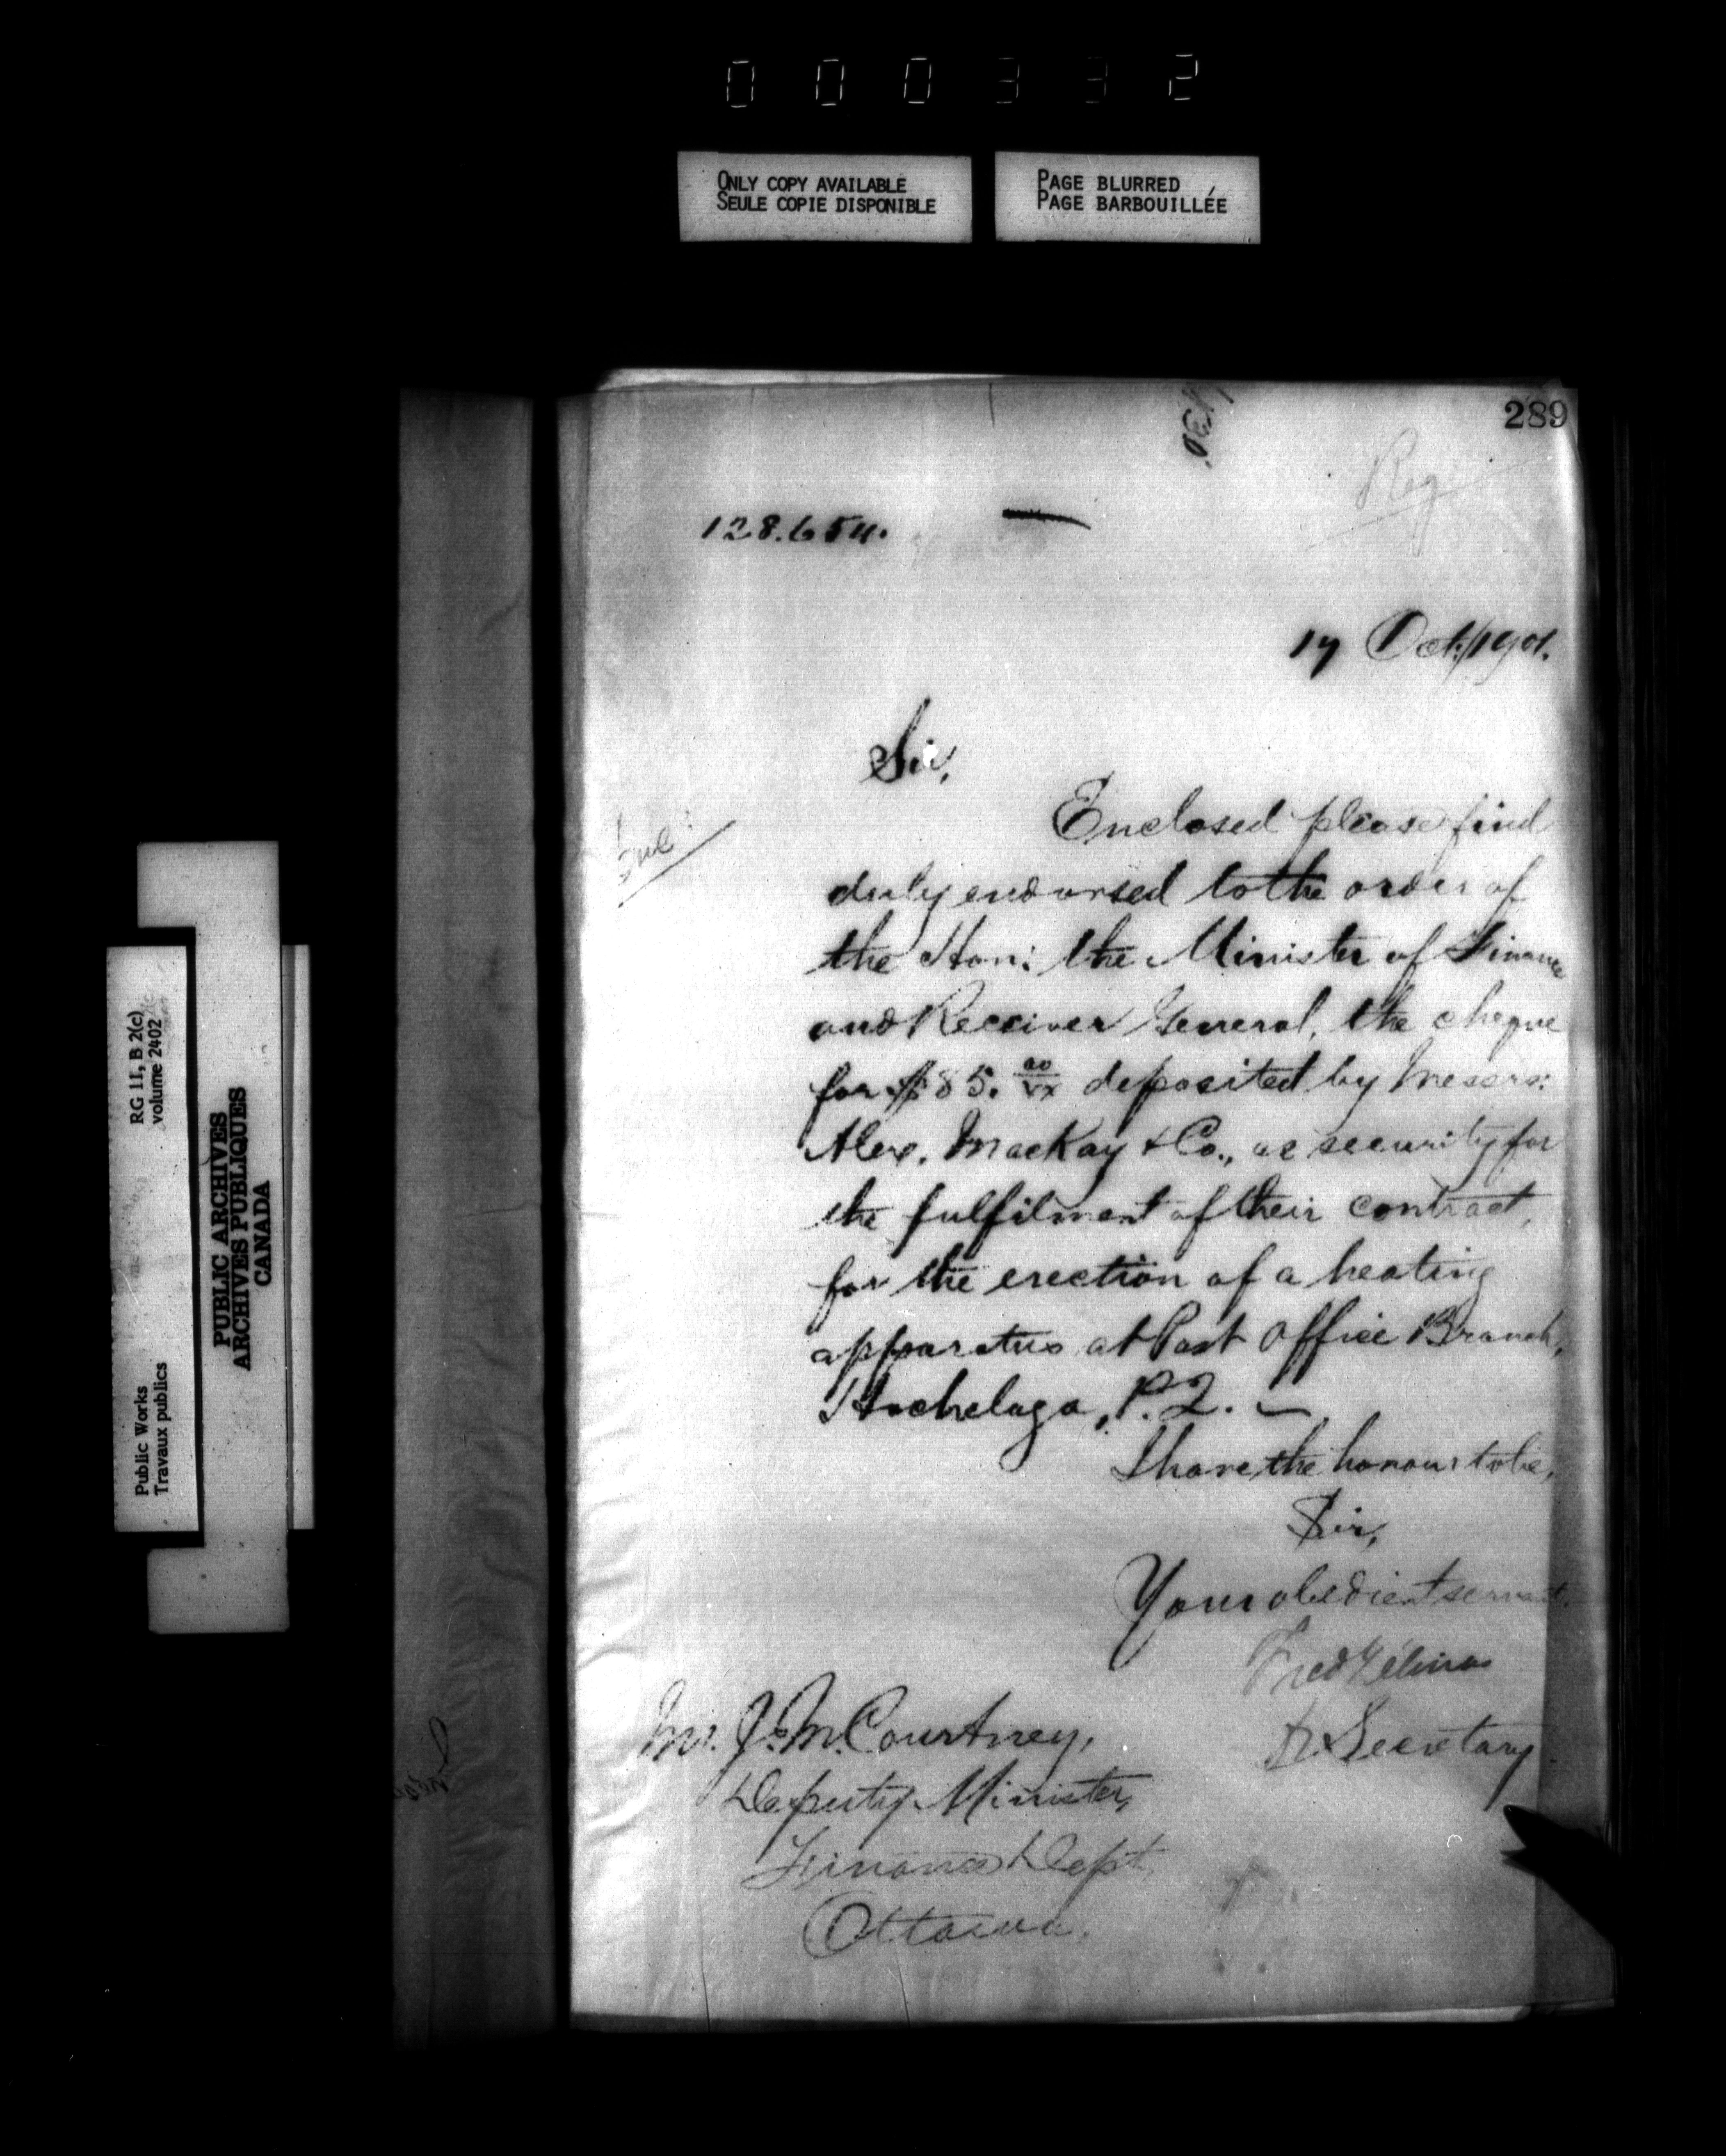 000332
ONLY COPY AVAILABLE
SEULE COPIE DISPONIBLE
PAGE BLURRED
PAGE BARBOUILLÉE
289
Reg
128.654.
17 Oct/1901.
Sir,
Enclosed please find
duly endorsed to the order of
the Hon: the Minister of Finance
and Receiver General, the cheque
for $85. 00/xx deposited by Messrs:
Alex. MacKay & Co., as security for
the fulfilment of their contract,
for the erection of a heating
apparatus at Post Office Branch,
Hochelaga, P.Q.
I have the honour to be,
Sir,
Your obedient servant.
Fred Gélinas
Secretary
Mr. J. M. Courtney,
Deputy Minister,
Finance Dept,
Ottawa.
RG 11, B 2(c)
volume 2402
Public Works
Travaux publics
PUBLIC ARCHIVES
ARCHIVES PUBLIQUES
CANADA